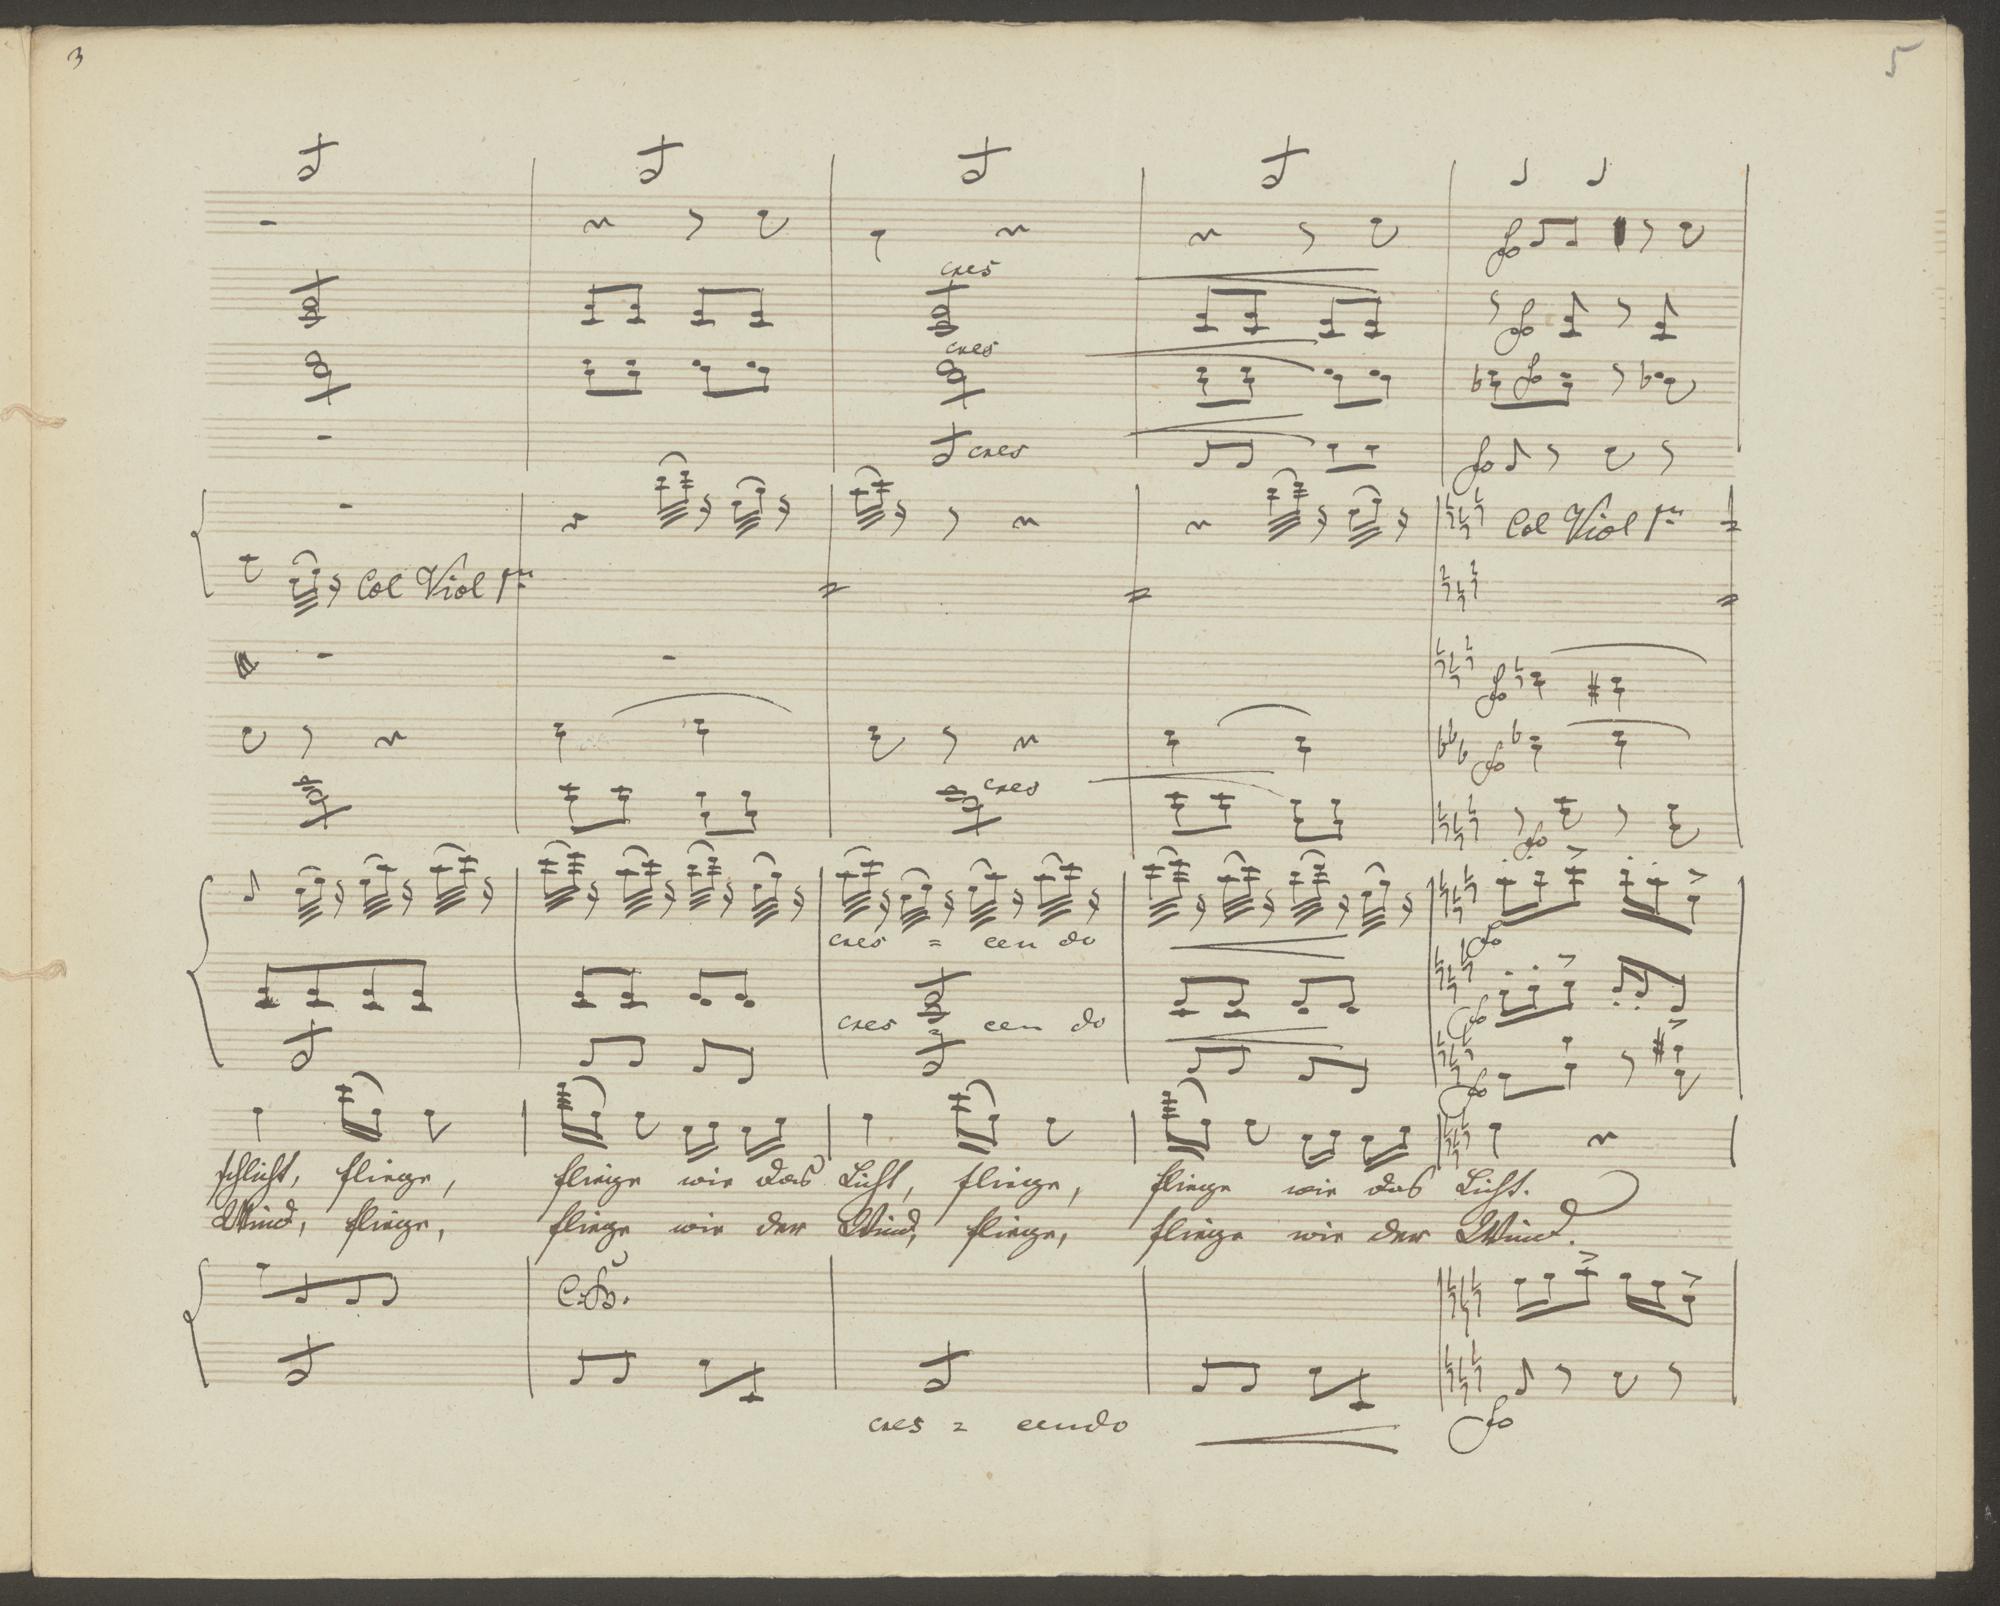 3
5
cres
cres
cres
Col Viol 1mo
Col Viol 1mo
cres
cres = cen do
cres = cen do
schlicht, fliege, fliege wie das Licht, fliege, fliege wie das Licht.
Wind, fliege, fliege wie der Wind, fliege, fliege wie der Wind.
C.B.
cres = cendo